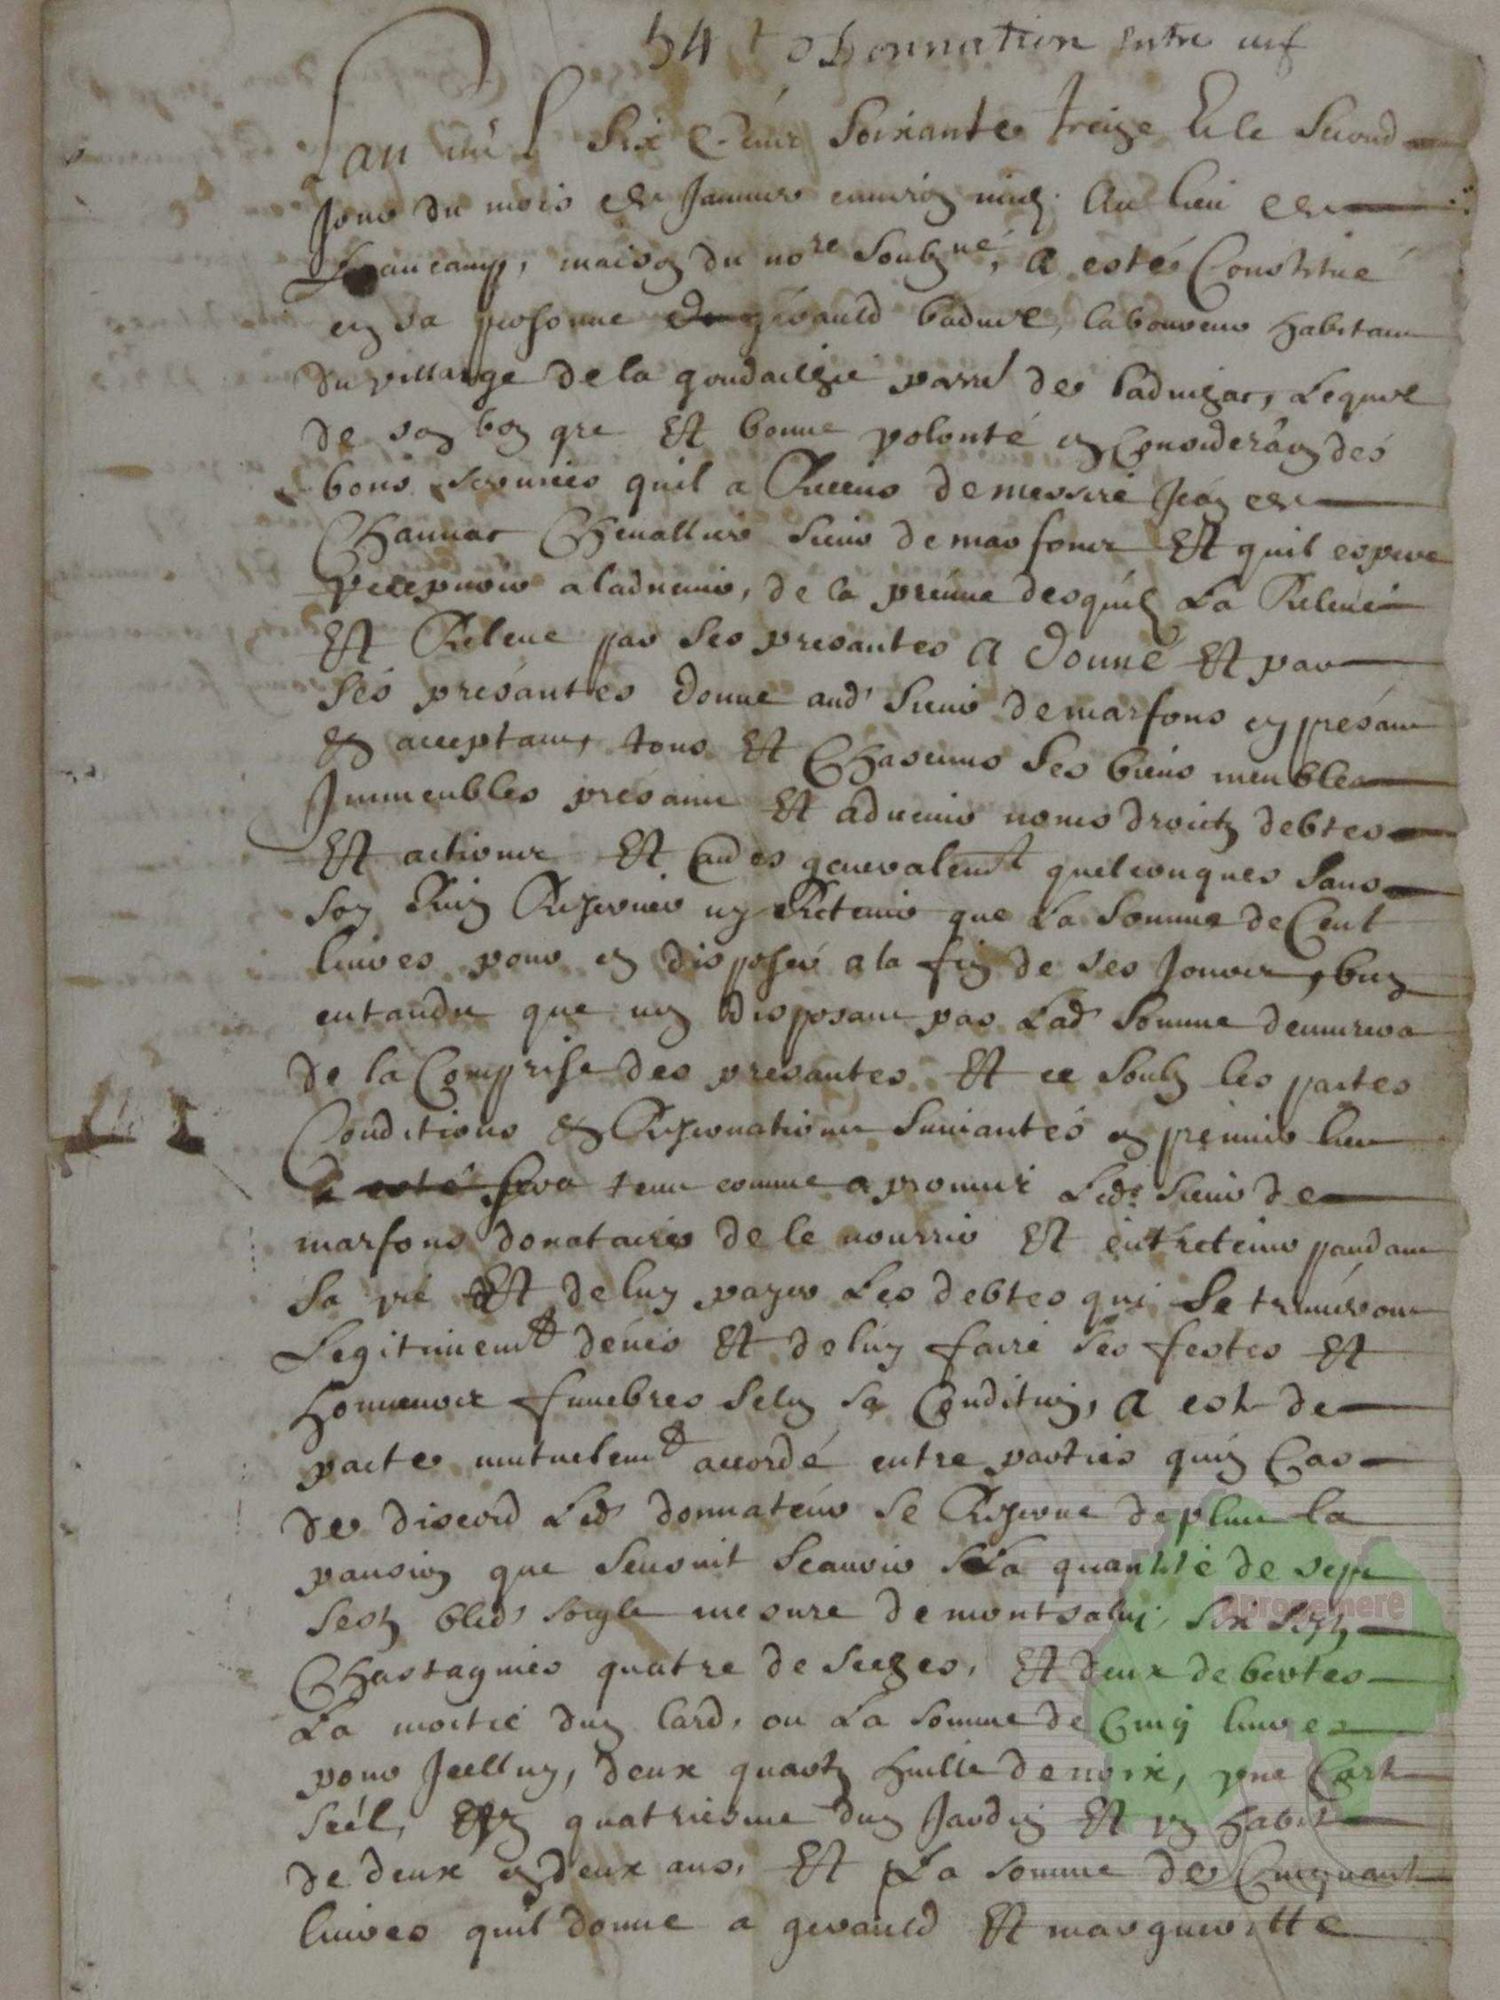 54 t donnation entre vif
Lan mil Six Cens Soixante treize & le Second
Jour du mois de Januier enuiron midy. Au lieu de
Beaucamp, maison du nore Soubzné, a esté Constitué
en sa personne gerauld badueL, laboureur habitant
du village de la goudalgie parre de Ladinhac, Lequel
de son bon gre Et bonne volonté en Consideraôn des
bons seruices quil a Receus de messire Jean de
Channac Cheuallier Sieur de marfons Et quil espere
receuoir a ladueuir, de la preuue desquels La Releué
Et Releue par Ses presantes A donné Et par
Ses presantes donne aud Sieur de marfons en presant
& acceptant, tous Et Chascuns Ses biens meubles
Immeubles presans Et aduenir noms droictz debtes
Et actions Et causes generalemt quelconques sans
soy Rien Reseruer ny Retenir que La Somme de Cent
liures pour en disposer a la fin de ses Jours, bien
entandu que ny disposant pas Lad Somme demurera
de la Comprise des presantes Et ce Soubz les pactes
Conditions & Reseruations suiuantes en premier lieu
a esté sera tenu comme a promis Led. Sieur de
marfons donataire de le nourrir Et entretenir pandant
Sa vie Et de luy payer Les debtes qui Se truuéront
Legitimemt deues Et de luy faire Ses festes Et
honneurs funebres Selon sa Condition, A este de
pacte mutuelemt accordé entre parties quen Cas
de discord Led donnateur se Reserue de plus la
pansion que sensuit Scauoir La quantité de sept
Sestz bled soigle mesure de montsaluy, six Sestz
Chastagnies quatre de seches, Et deux de bertes
La moitié dun lard, ou La somme de Cinq liures
pour Jcelluy, deux quartz huille de noix, vne Carte
séél, quatriesme dun Jardin Et vn habit
de deux en deux ans, Et La somme de Cinquante
liures quil donne a gerauld Et margueritte
apropemere